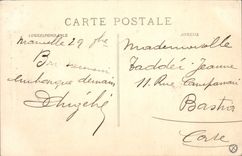 CARTE POSTALE
CORRESPONDANCE
ADRESSE
Marseille 29
Bon
embarque demain
Mademoiselle
Taddéi Jeanne
11. Rue Campanari
Bastia
Corse